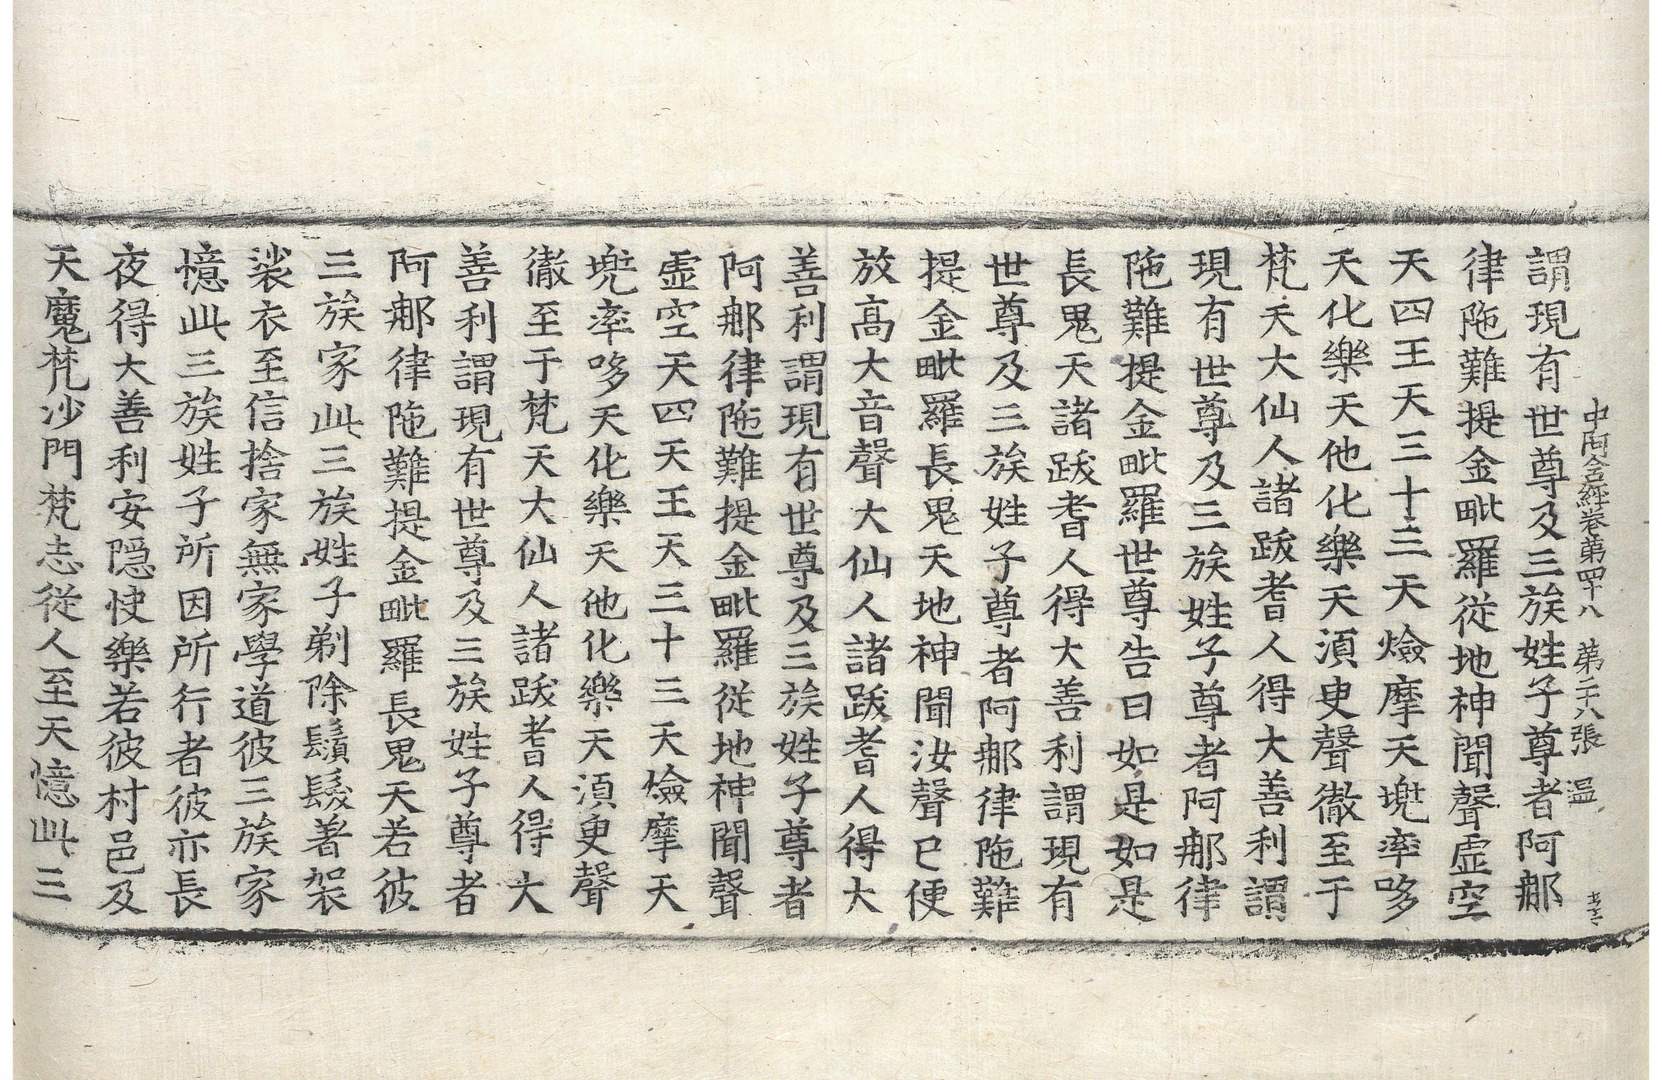 中阿含經卷第四十八 第二十八張 溫
謂現有世尊及三族姓子尊者阿那
律陁難提金毗羅從地神聞聲虛空
天四王天三十三天焰摩天兠率哆
天化樂天他化樂天湏臾聲徹至于
梵天大仙人諸跋耆人得大善利謂
現有世尊及三族姓子尊者阿那律
陁難提金毗羅世尊告曰如是如是
長鬼天諸跋耆人得大善利謂現有
世尊及三族姓子尊者阿那律陁難
提金毗羅長鬼天地神聞汝聲已便
放高大音聲大仙人諸跋耆人得大
善利謂現有世尊及三族姓子尊者
阿那律陁難提金毗羅從地神聞聲
虛空天四天王天三十三天焰摩天
兠率哆天化樂天他化樂天湏臾聲
徹至于梵天大仙人諸跋耆人得大
善利謂現有世尊及三族姓子尊者
阿那律陁難提金毗羅長鬼天若彼
三族家此三族姓子剃除鬚髮著袈
裟衣至信捨家無家學道彼三族家
憶此三族姓子所因所行者彼亦長
夜得大善利安隱快樂若彼村邑及
天魔梵沙門梵志從人至天憶此三